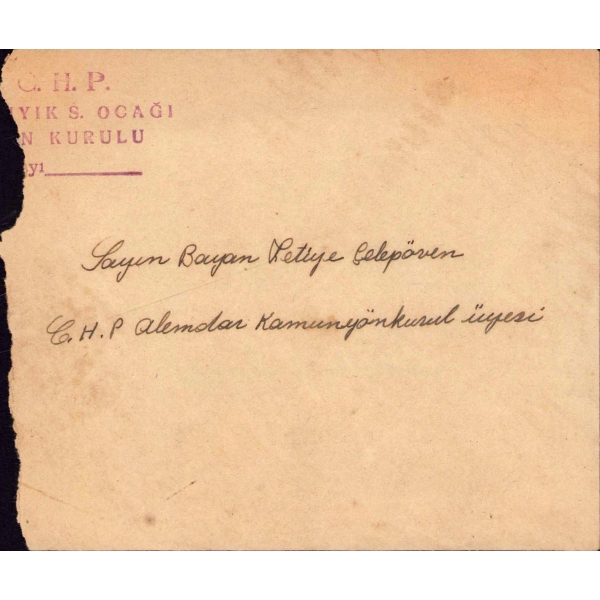 C. H. P.
YIK S. OCAĞI
N KURULU
yı
Sayın Bayan Zetiye Çelepöven
C.H.P Alemdar Kamunyönkurul üyesi